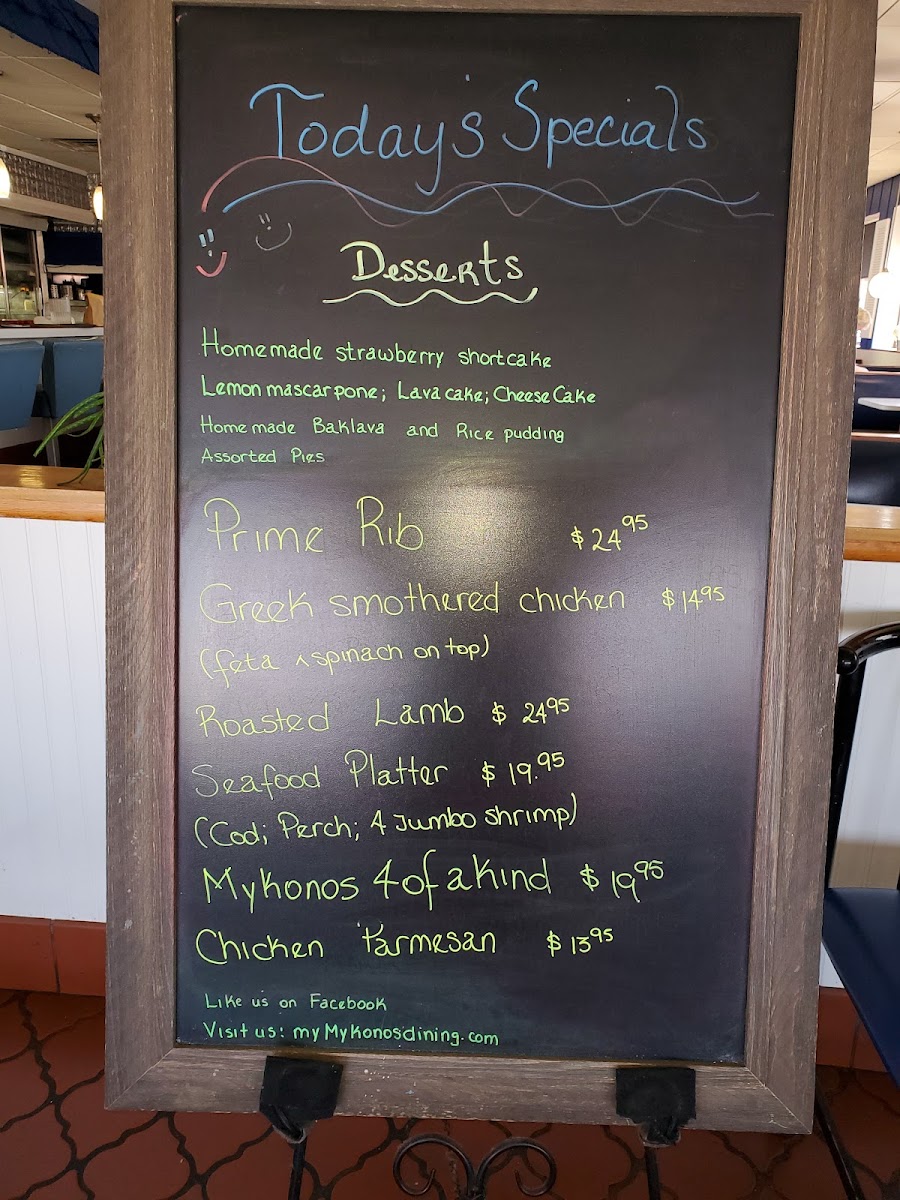 Today's Specials
Desserts
Homemade strawberry shortcake
Lemon mascarpone; Lava cake; Cheese Cake
Homemade Baklava and Rice pudding
Assorted Pies
Prime Rib $24.95
Greek smothered chicken $14.95
(feta & spinach on top)
Roasted Lamb $24.95
Seafood Platter $19.95
(Cod; Perch; 4 Jumbo shrimp)
Mykonos 4 of a kind $19.95
Chicken Parmesan $13.95
Like us on Facebook
Visit us: myMykonosdining.com